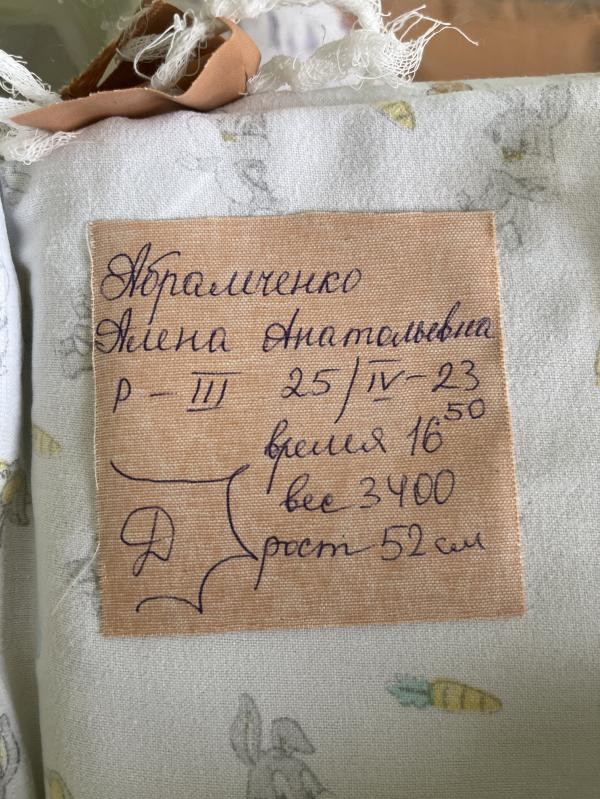 Абрамченко
Алена Анатольевна
р - III 25/IV-23
время 16 50
вес 3400
Д рост 52 см